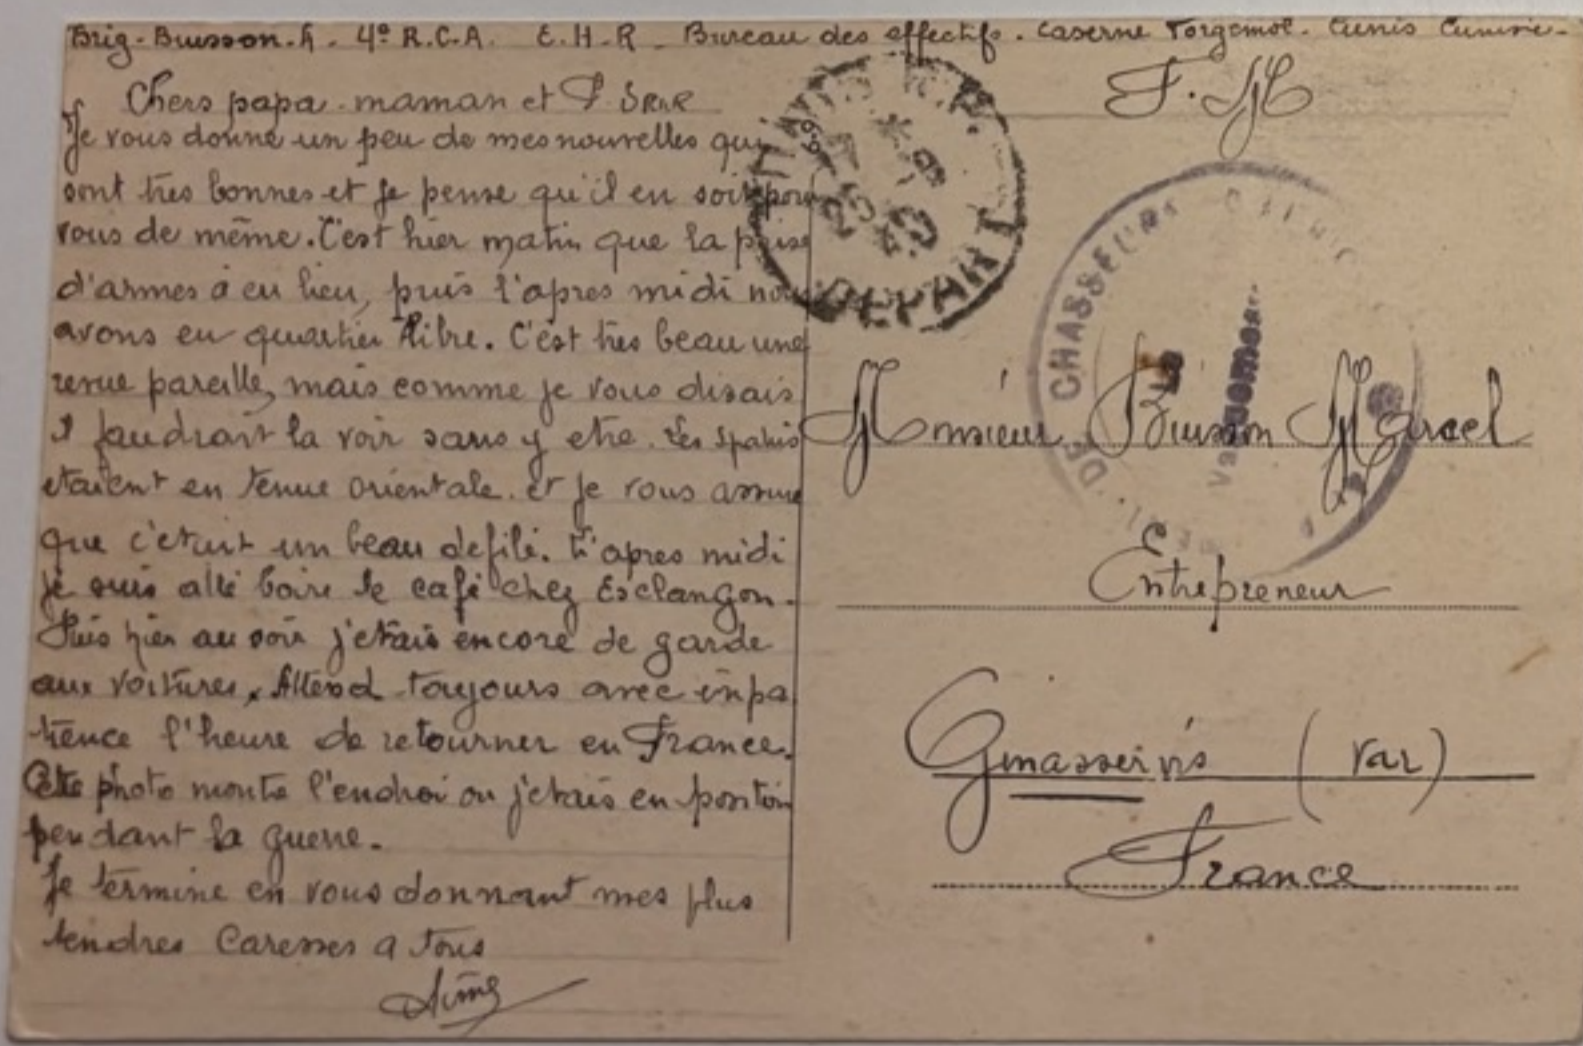 Brig-Buisson.A. 4e R.C.A. E.H.R. Bureau des effectifs. Caserne Forgemol. Tunis Tunisie.
Chers papa. maman et
Je vous donne un peu de mes nouvelles qui
sont tres bonnes et je pense qu'il en soit pour
vous de même. C'est hier matin que la prise
d'armes à eu lieu, puis l'apres midi nous
avons eu quartier libre. C'est tres beau une
revue pareille, mais comme je vous disais
I faudrait la voir sans y etre. Les Spahis
etaient en tenue orientale. et je vous assure
que c'etait un beau defilé. L'apres midi
je suis allé boire le café chez Esclangon.
Puis hier au soir j'etais encore de garde
aux voitures, Attend toujours avec inpa
tience l'heure de retourner en France.
Cette photo montre l'endroi ou j'etais en position
pendant la guerre.
Je termine en vous donnant mes plus
tendres Caresses a tous
Aimé
F.M
TUNIS R.P.
DEPART
DE CHASSEURS
Vaguemestre
Monsieur Buisson Marcel
Entrepreneur
Ginasservis (Var)
France